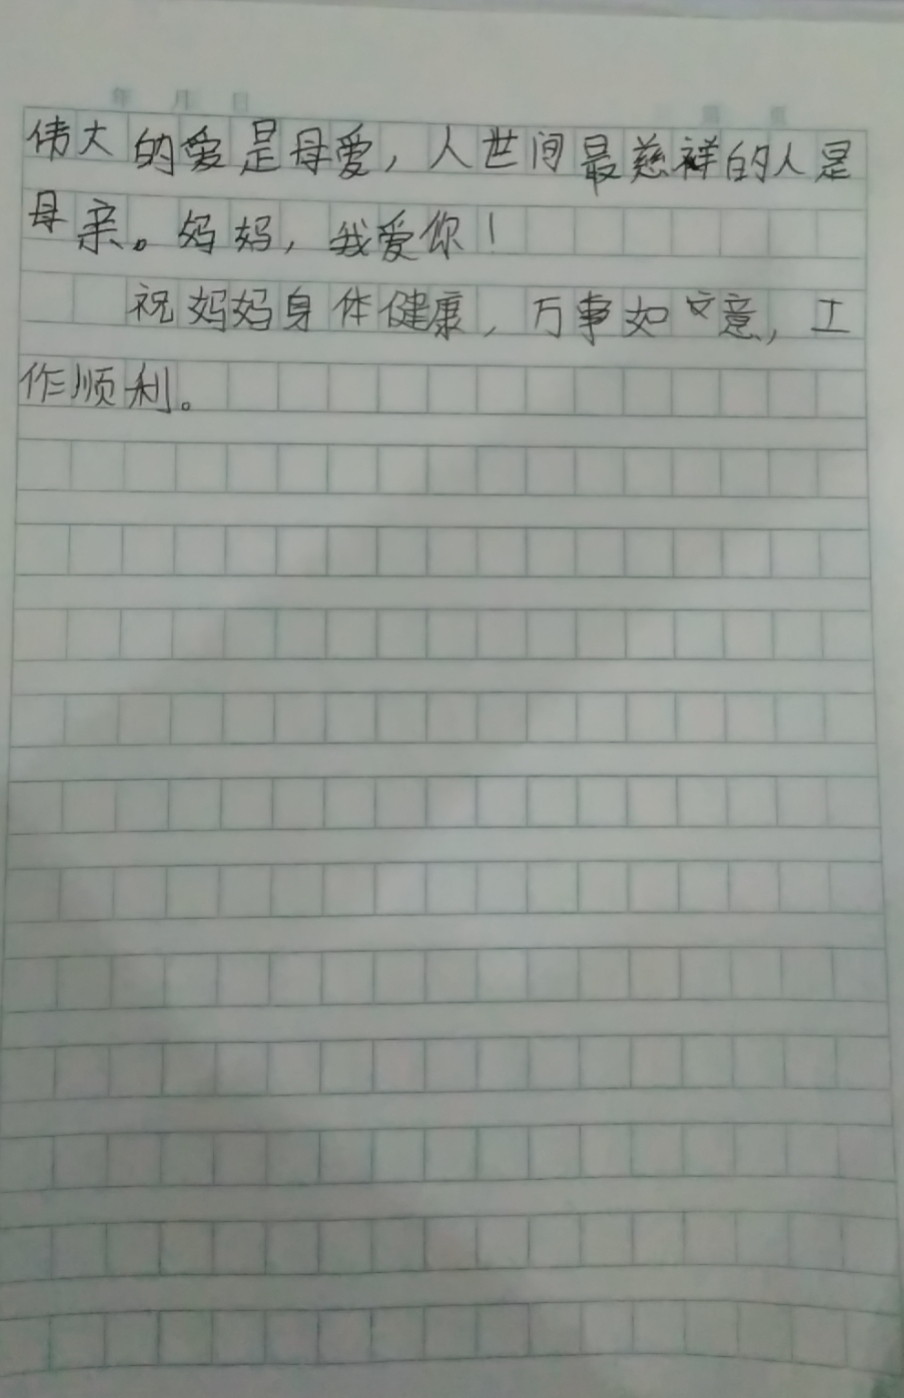 年 月 日
伟大的爱是母爱，人世间最慈祥的人是
母亲。妈妈，我爱你！
祝妈妈身体健康，万事如意，工
作顺利。